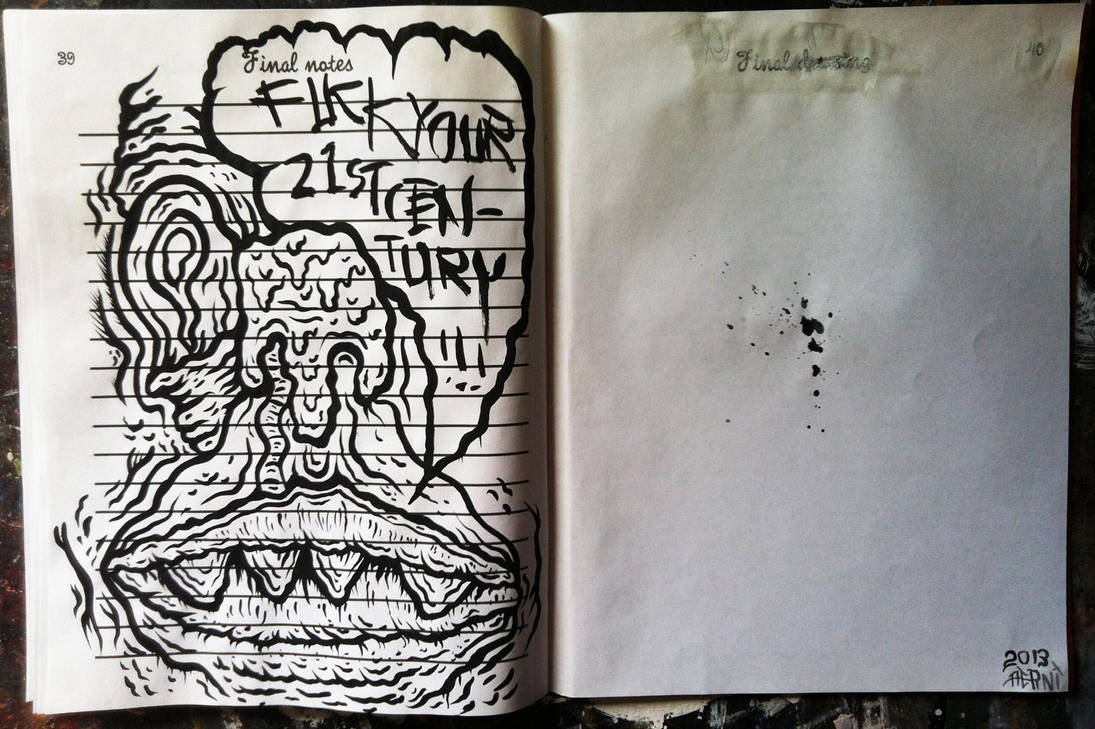 39
Final notes
FUKK YOUR
21ST CEN-
TURY
!!!
Final drawing
40
2013